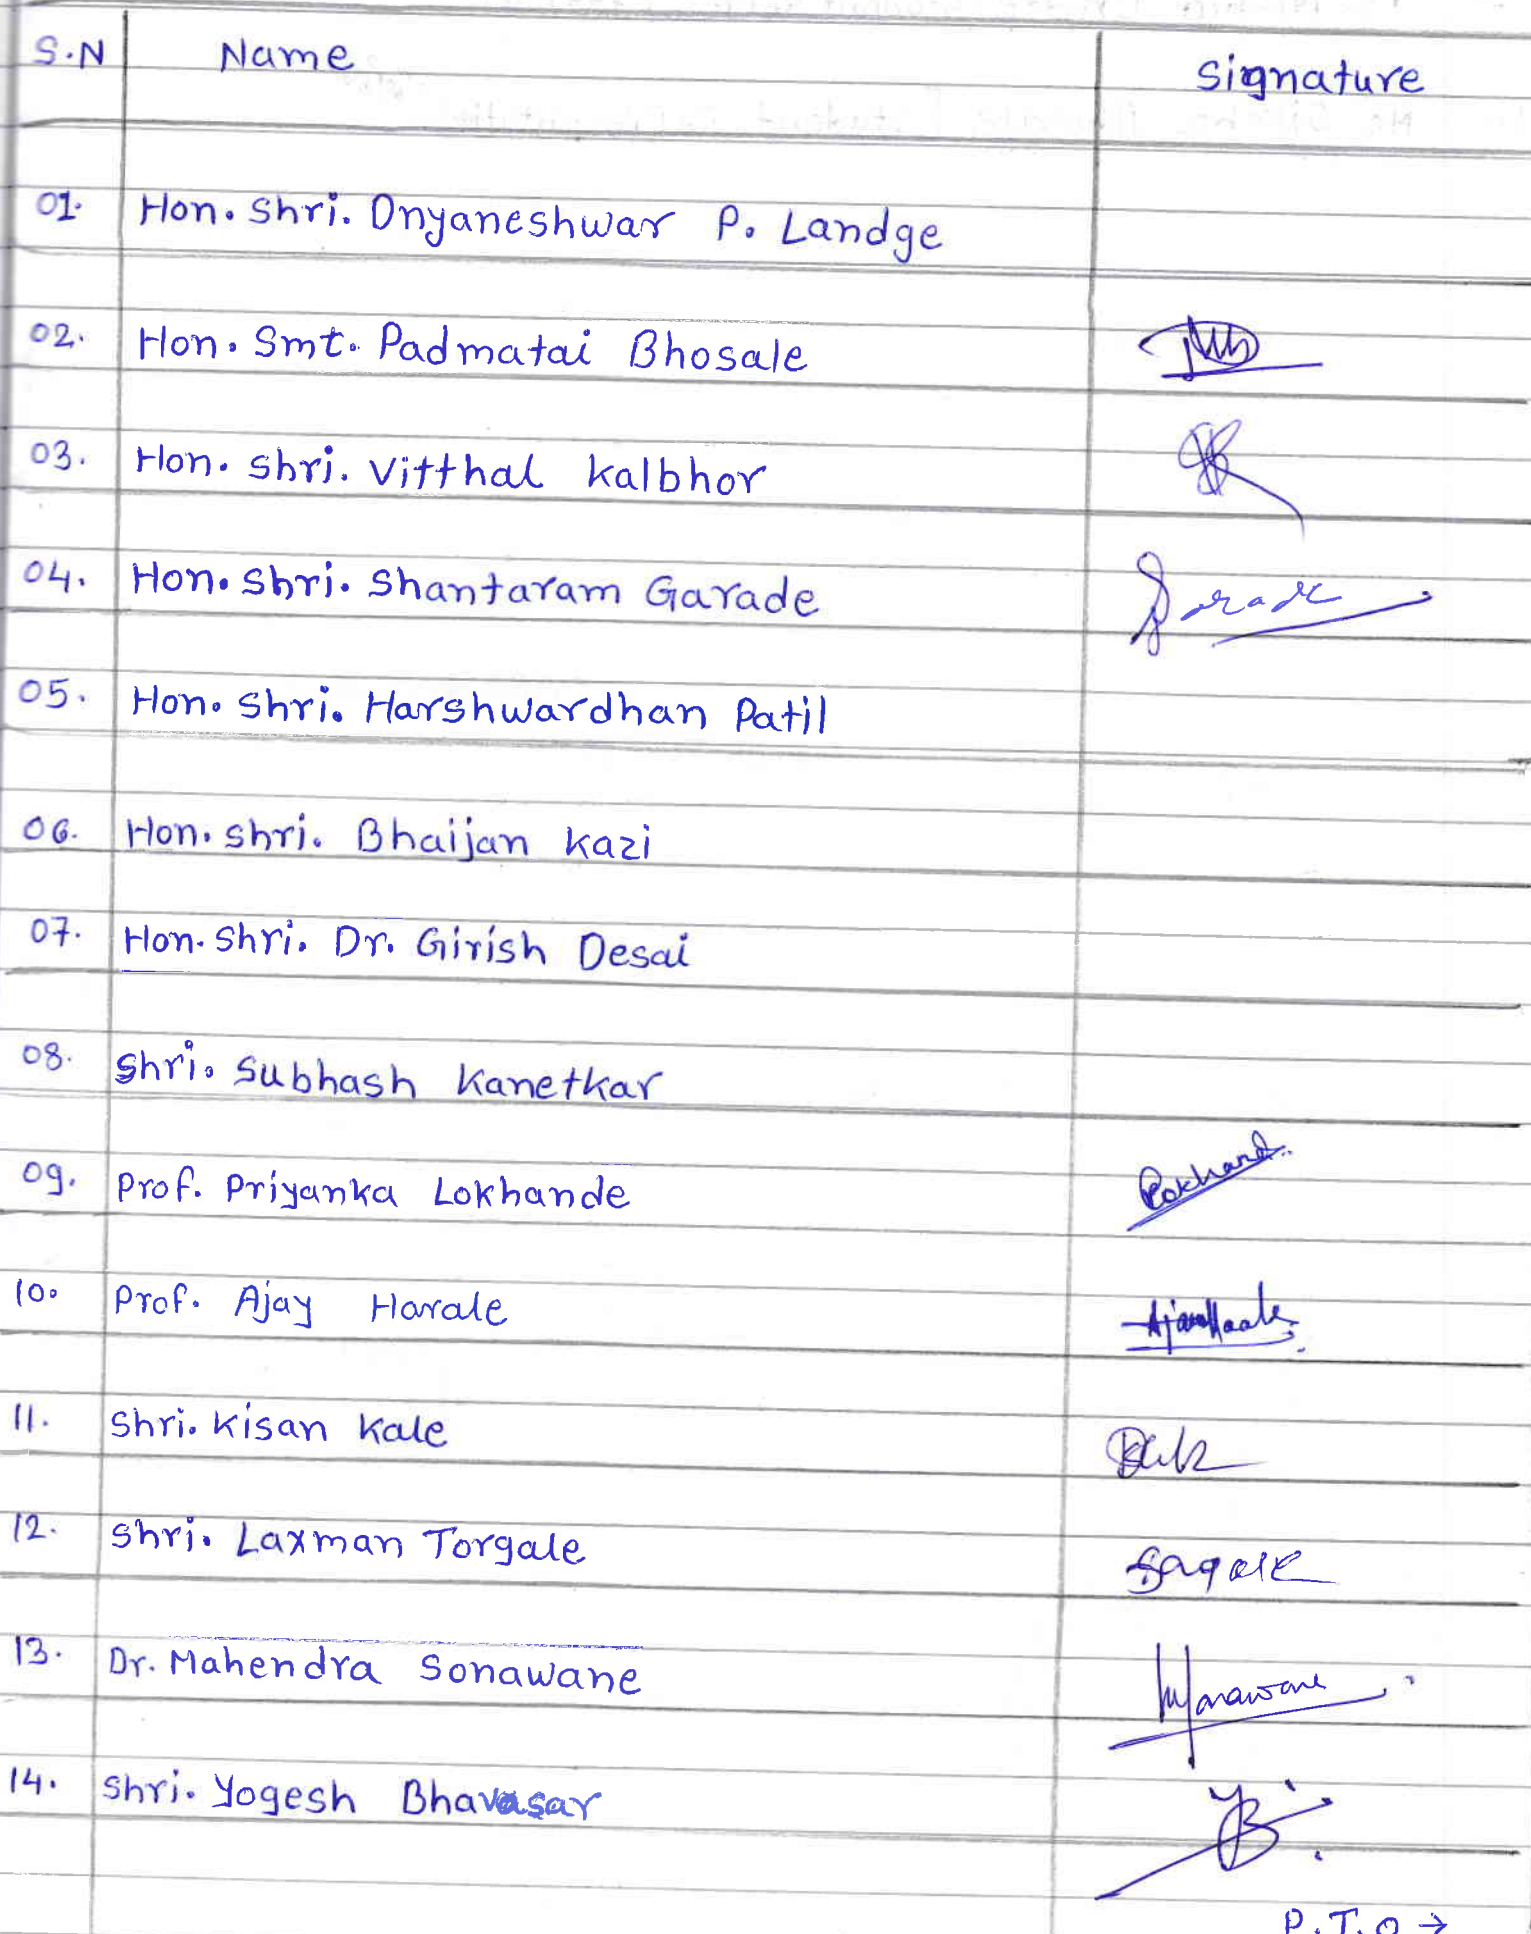 S.N Name Signature
01. Hon. Shri. Dnyaneshwar P. Landge
02. Hon. Smt. Padmatai Bhosale
03. Hon. Shri. Vitthal Kalbhor
04. Hon. Shri. Shantaram Garade
05. Hon. Shri. Harshwardhan Patil
06. Hon. Shri. Bhaijan Kazi
07. Hon. Shri. Dr. Girish Desai
08. Shri. Subhash Kanetkar
09. Prof. Priyanka Lokhande
10. Prof. Ajay Harale
11. Shri. Kisan Kale
12. Shri. Laxman Torgale
13. Dr. Mahendra Sonawane
14. Shri. Yogesh Bhavasar
P.T.O →